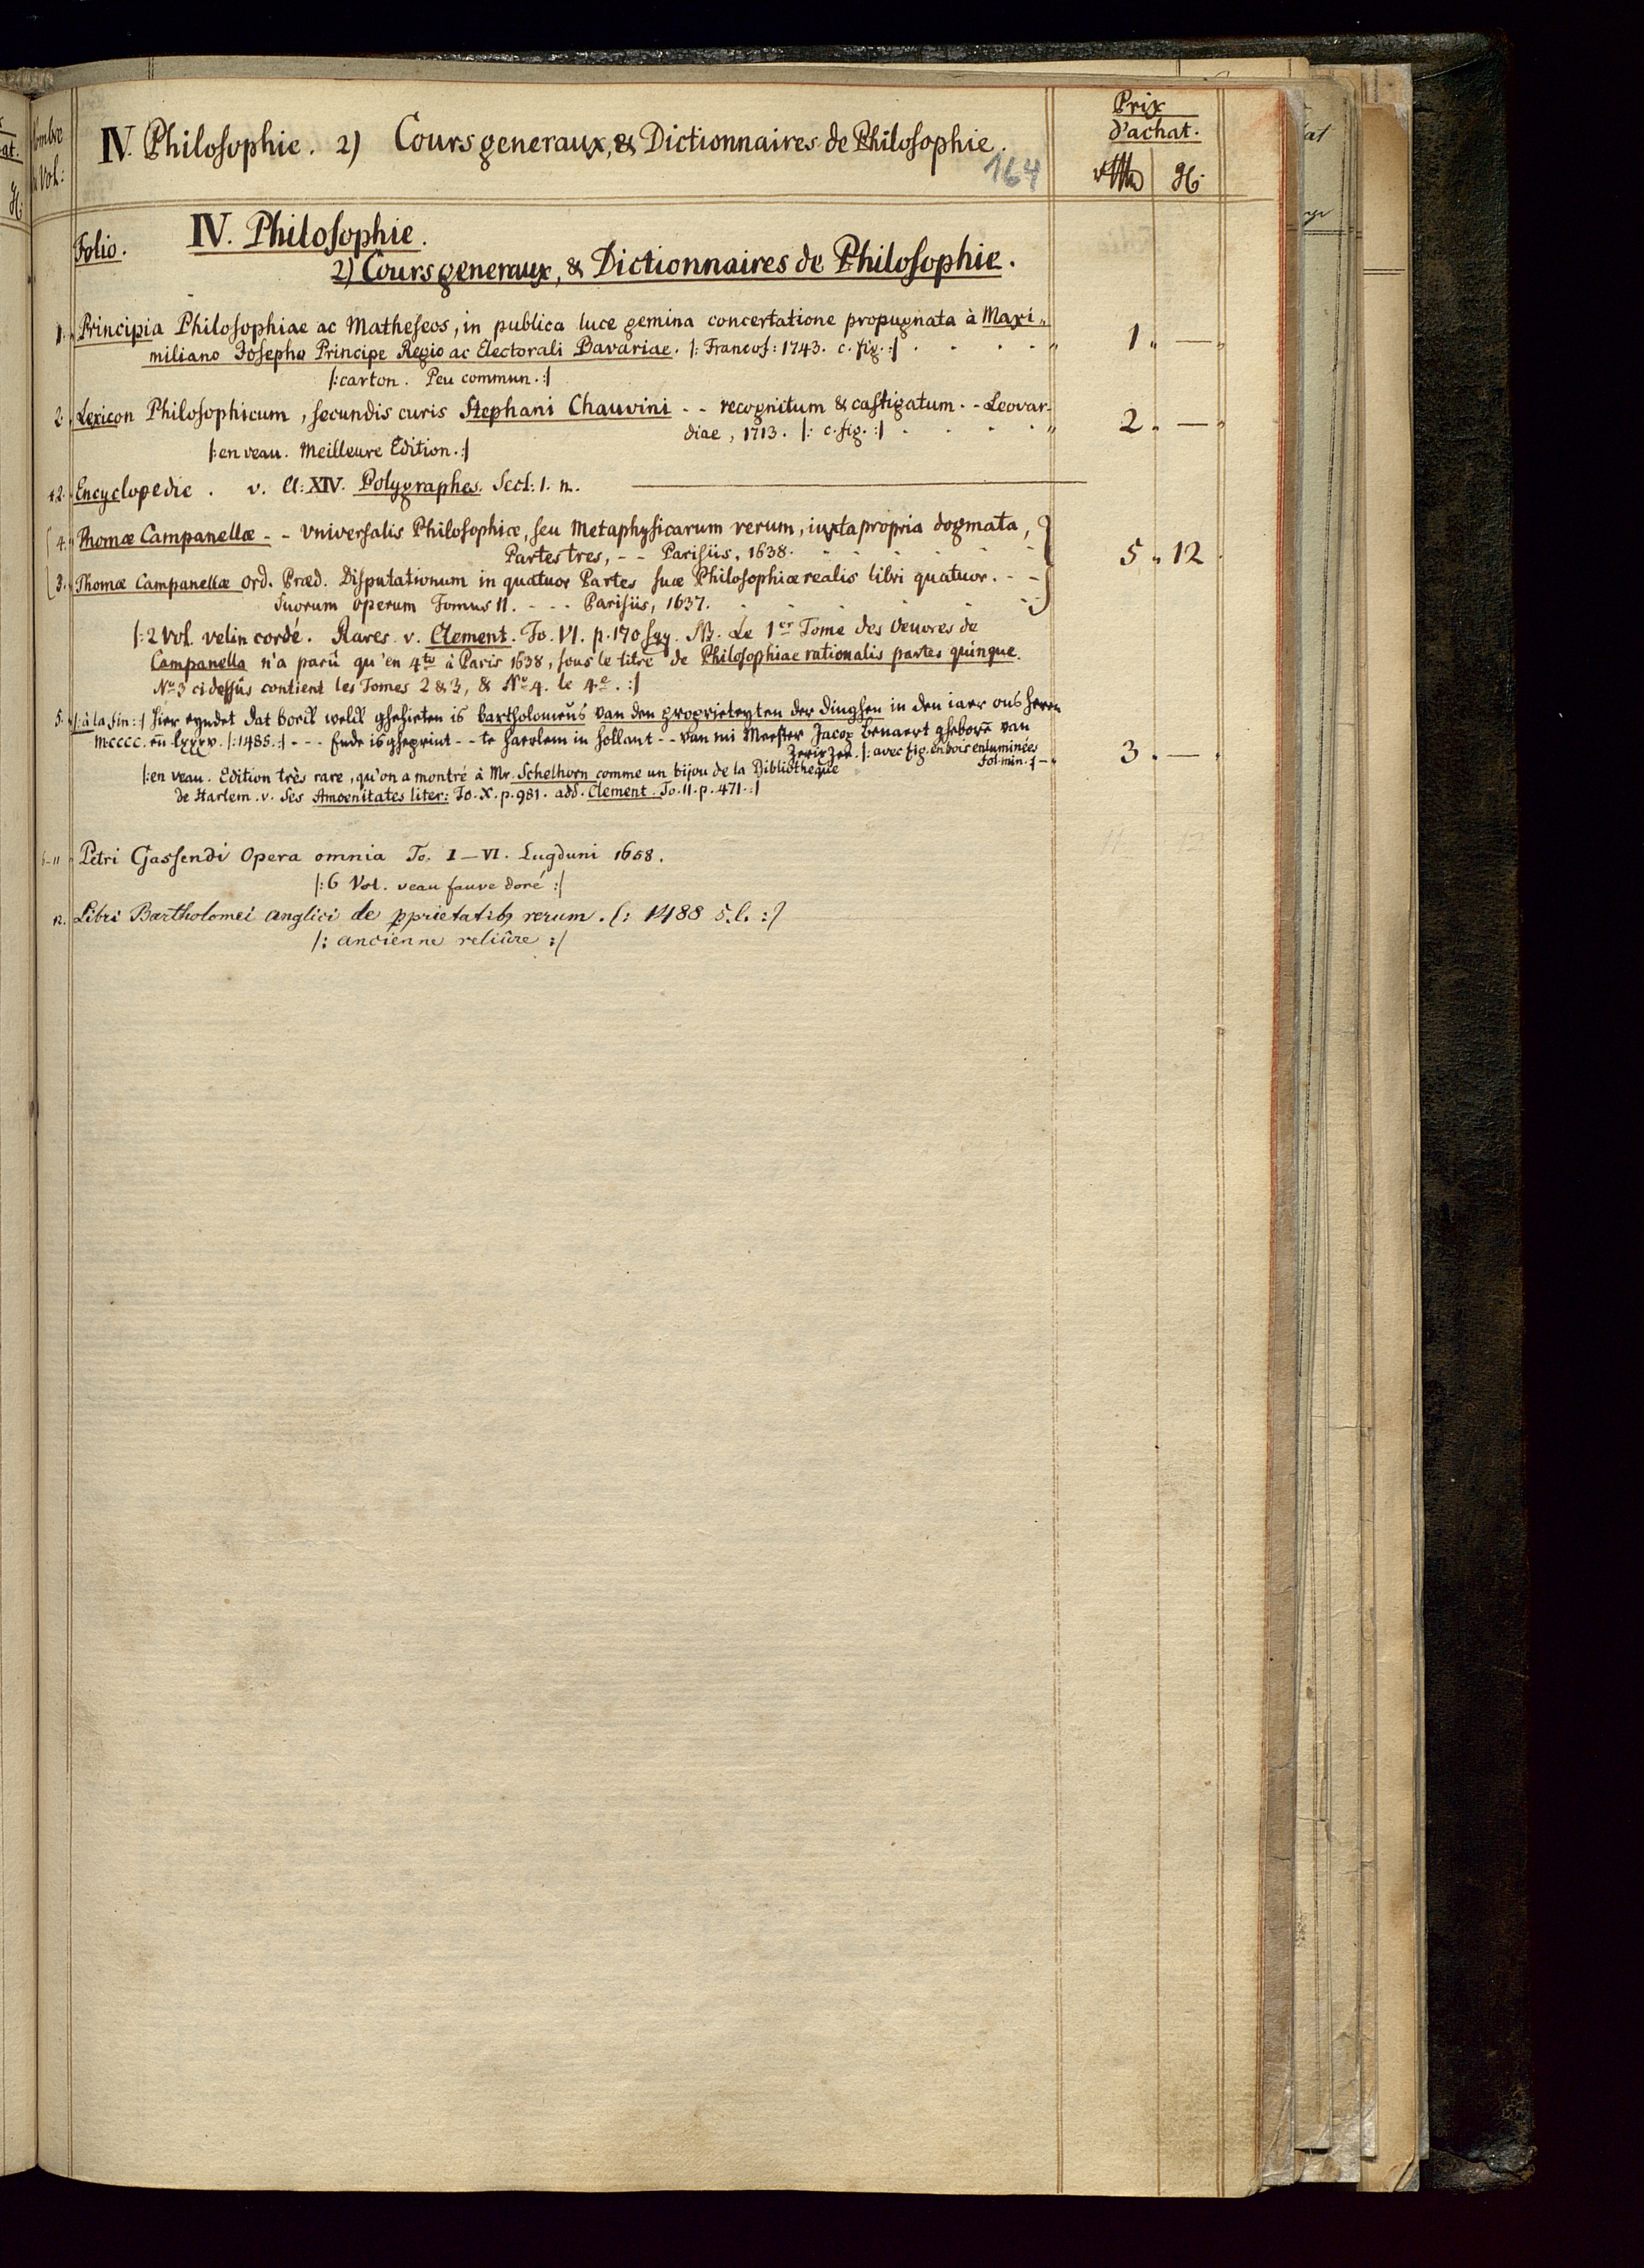 Nombre
d Vol:
IV. Philosophie. 2) Cours generaux, & Dictionnaires de Philosophie.
164
Prix
d'achat.
Folio. IV. Philosophie.
2) Cours generaux, & Dictionnaires de Philosophie.
1. Principia Philosophiae ac Matheseos, in publica luce gemina concertatione propugnata à Maxi-
miliano Josepho Principe Regio ac Electorali Bavariae. |: Francof: 1743. c. fig. :| 1. —
|: carton. Peu commun. :|
2. Lexicon Philosophicum, secundis curis Stephani Chauvini - - recognitum & castigatum. - - Leovar-
diae, 1713. |: c. fig. :| 2. —
|: en veau. Meilleure Edition. :|
Encyclopedie. v. Cl: XIV. Polygraphes. Sect: 1. n.
4. Thomæ Campanellæ - - Vniversalis Philosophiæ, seu Metaphysicarum rerum, iuxta propria dogmata,
Partes tres, - - Parisiis, 1638. 5. 12
3. Thomæ Campanellæ Ord. Præd. Disputationum in quatuor Partes suæ Philosophiæ realis libri quatuor. - -
Suorum operum Tomus II. - - - Parisiis, 1637.
|: 2 Vol. velin cordé. Rares. v. Clement. To. VI. p. 170 sqq. NB. Le 1er Tome des Oeuvres de
Campanella n'a parû qu'en 4to à Paris 1638, sous le titre de Philosophiae rationalis partes quinque.
No 3 ci dessûs contient les Tomes 2 & 3, & No 4. le 4e. :|
5. |: à la fin: :| Hier eyndet dat boeck welck ghehieten is bartholomeüs van den proprieteyten der dinghen in den iaer ons heren
m.cccc. eñ lxxxv. |: 1485. :| - - - Ende is gheprint - - te haerlem in hollant - - van mi Meester Jacop Benaert gheborē van
Zerixzee. |: avec fig. en bois enluminées
fol. min. :| 3. —
|: en veau. Edition très rare, qu'on a montré à Mr. Schelhorn comme un bijou de la Bibliotheque
de Harlem. v. ses Amoenitates liter: To. X. p. 981. add. Clement. To. II. p. 471. :|
6-11 Petri Gassendi Opera omnia To. I – VI. Lugduni 1658. 11 12
|: 6 Vol. veau fauve doré :|
n. Libri Bartholomei anglici de pprietatib9 rerum. |: 1488 s.l. :|
|: ancienne reliûre :|